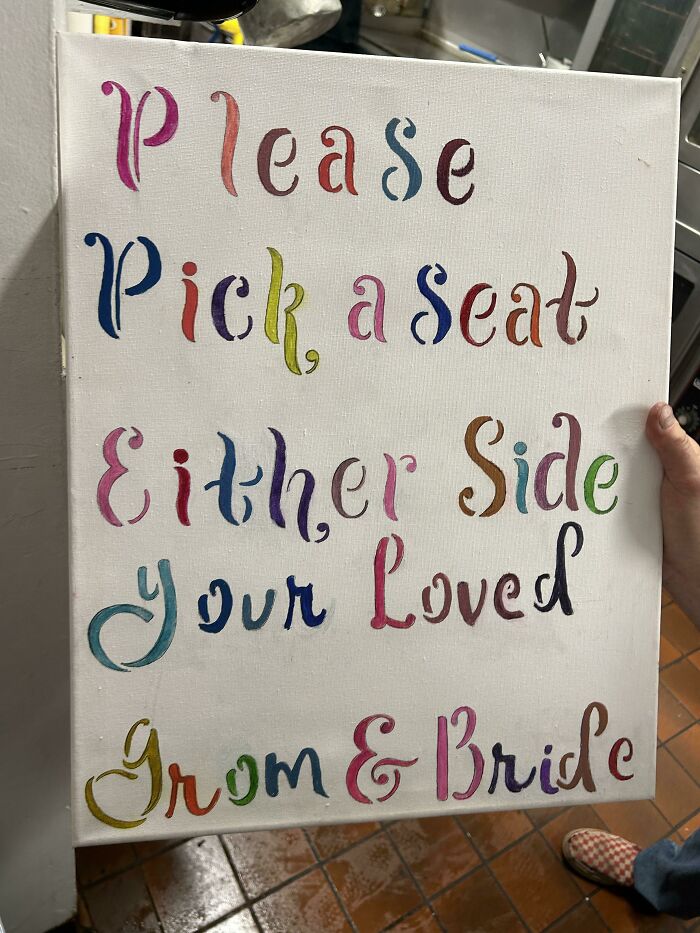 Please
Pick a Seat
Either Side
your Loved
grom & Bride